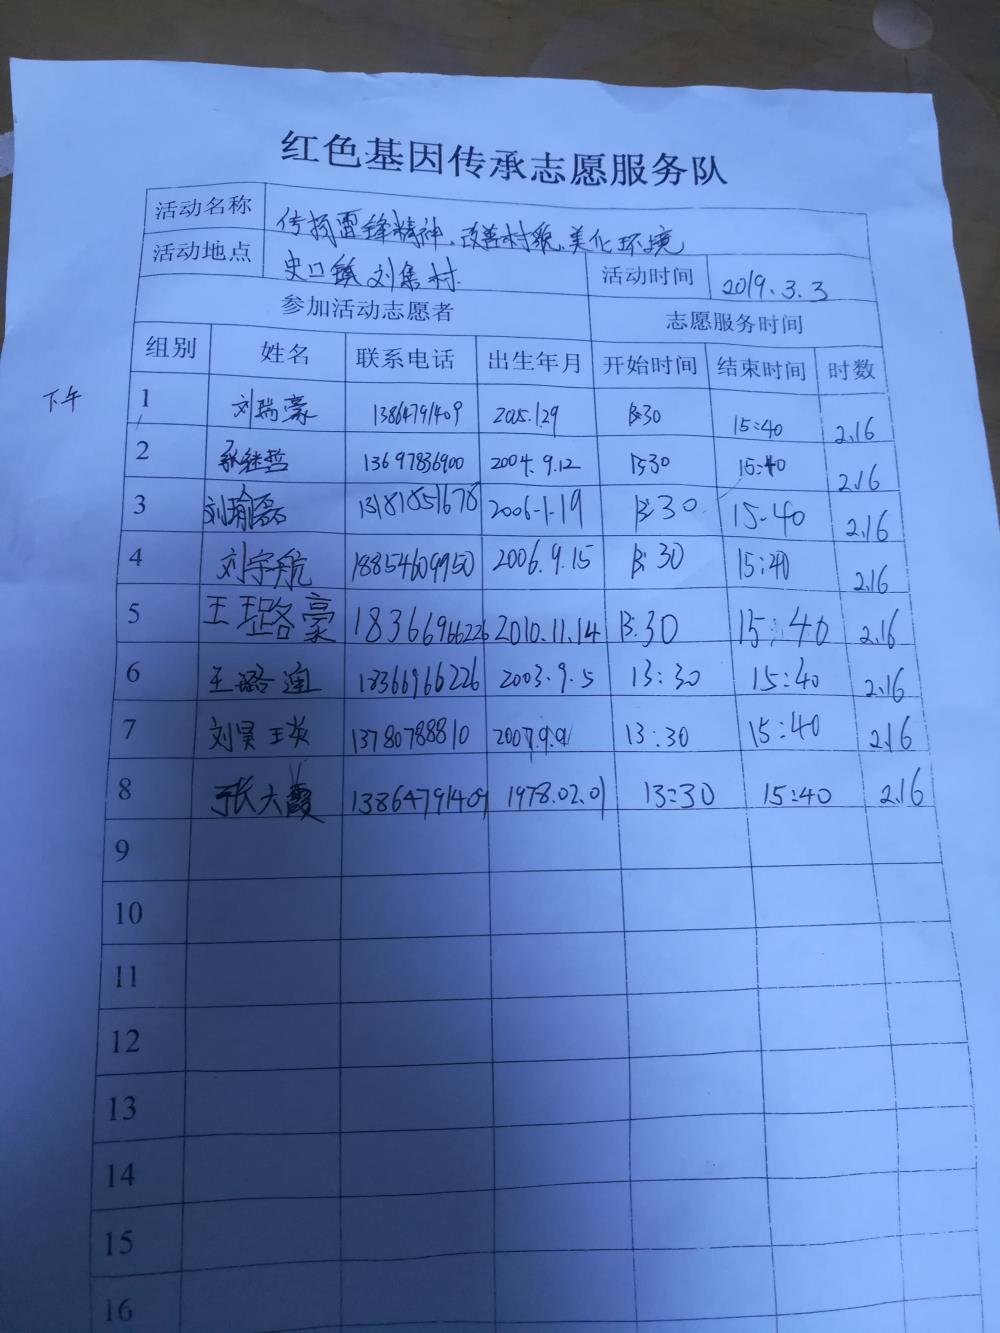 红色基因传承志愿服务队
活动名称 传扬雷锋精神、改善村貌、美化环境
活动地点 史口镇刘集村 活动时间 2019.3.3
参加活动志愿者 志愿服务时间
组别 姓名 联系电话 出生年月 开始时间 结束时间 时数
下午
1 刘瑞豪 13864791409 2005.1.29 13:30 15:40 2.16
2 继哲 13697836900 2004.9.12 13:30 15:40 2.16
3 刘瑜磊 13181851678 2006-1-19 13:30 15-40 2.16
4 刘宇航 18854609950 2006.9.15 13:30 15:40 2.16
5 王璐豪 18366966226 2010.11.14 13:30 15:40 2.16
6 王璐 18366966226 2003.9.5 13:30 15:40 2.16
7 刘昊 13780788810 2007.9.9 13:30 15:40 2.16
8 张大霞 13864791409 1978.02.01 13:30 15:40 2.16
9
10
11
12
13
14
15
16